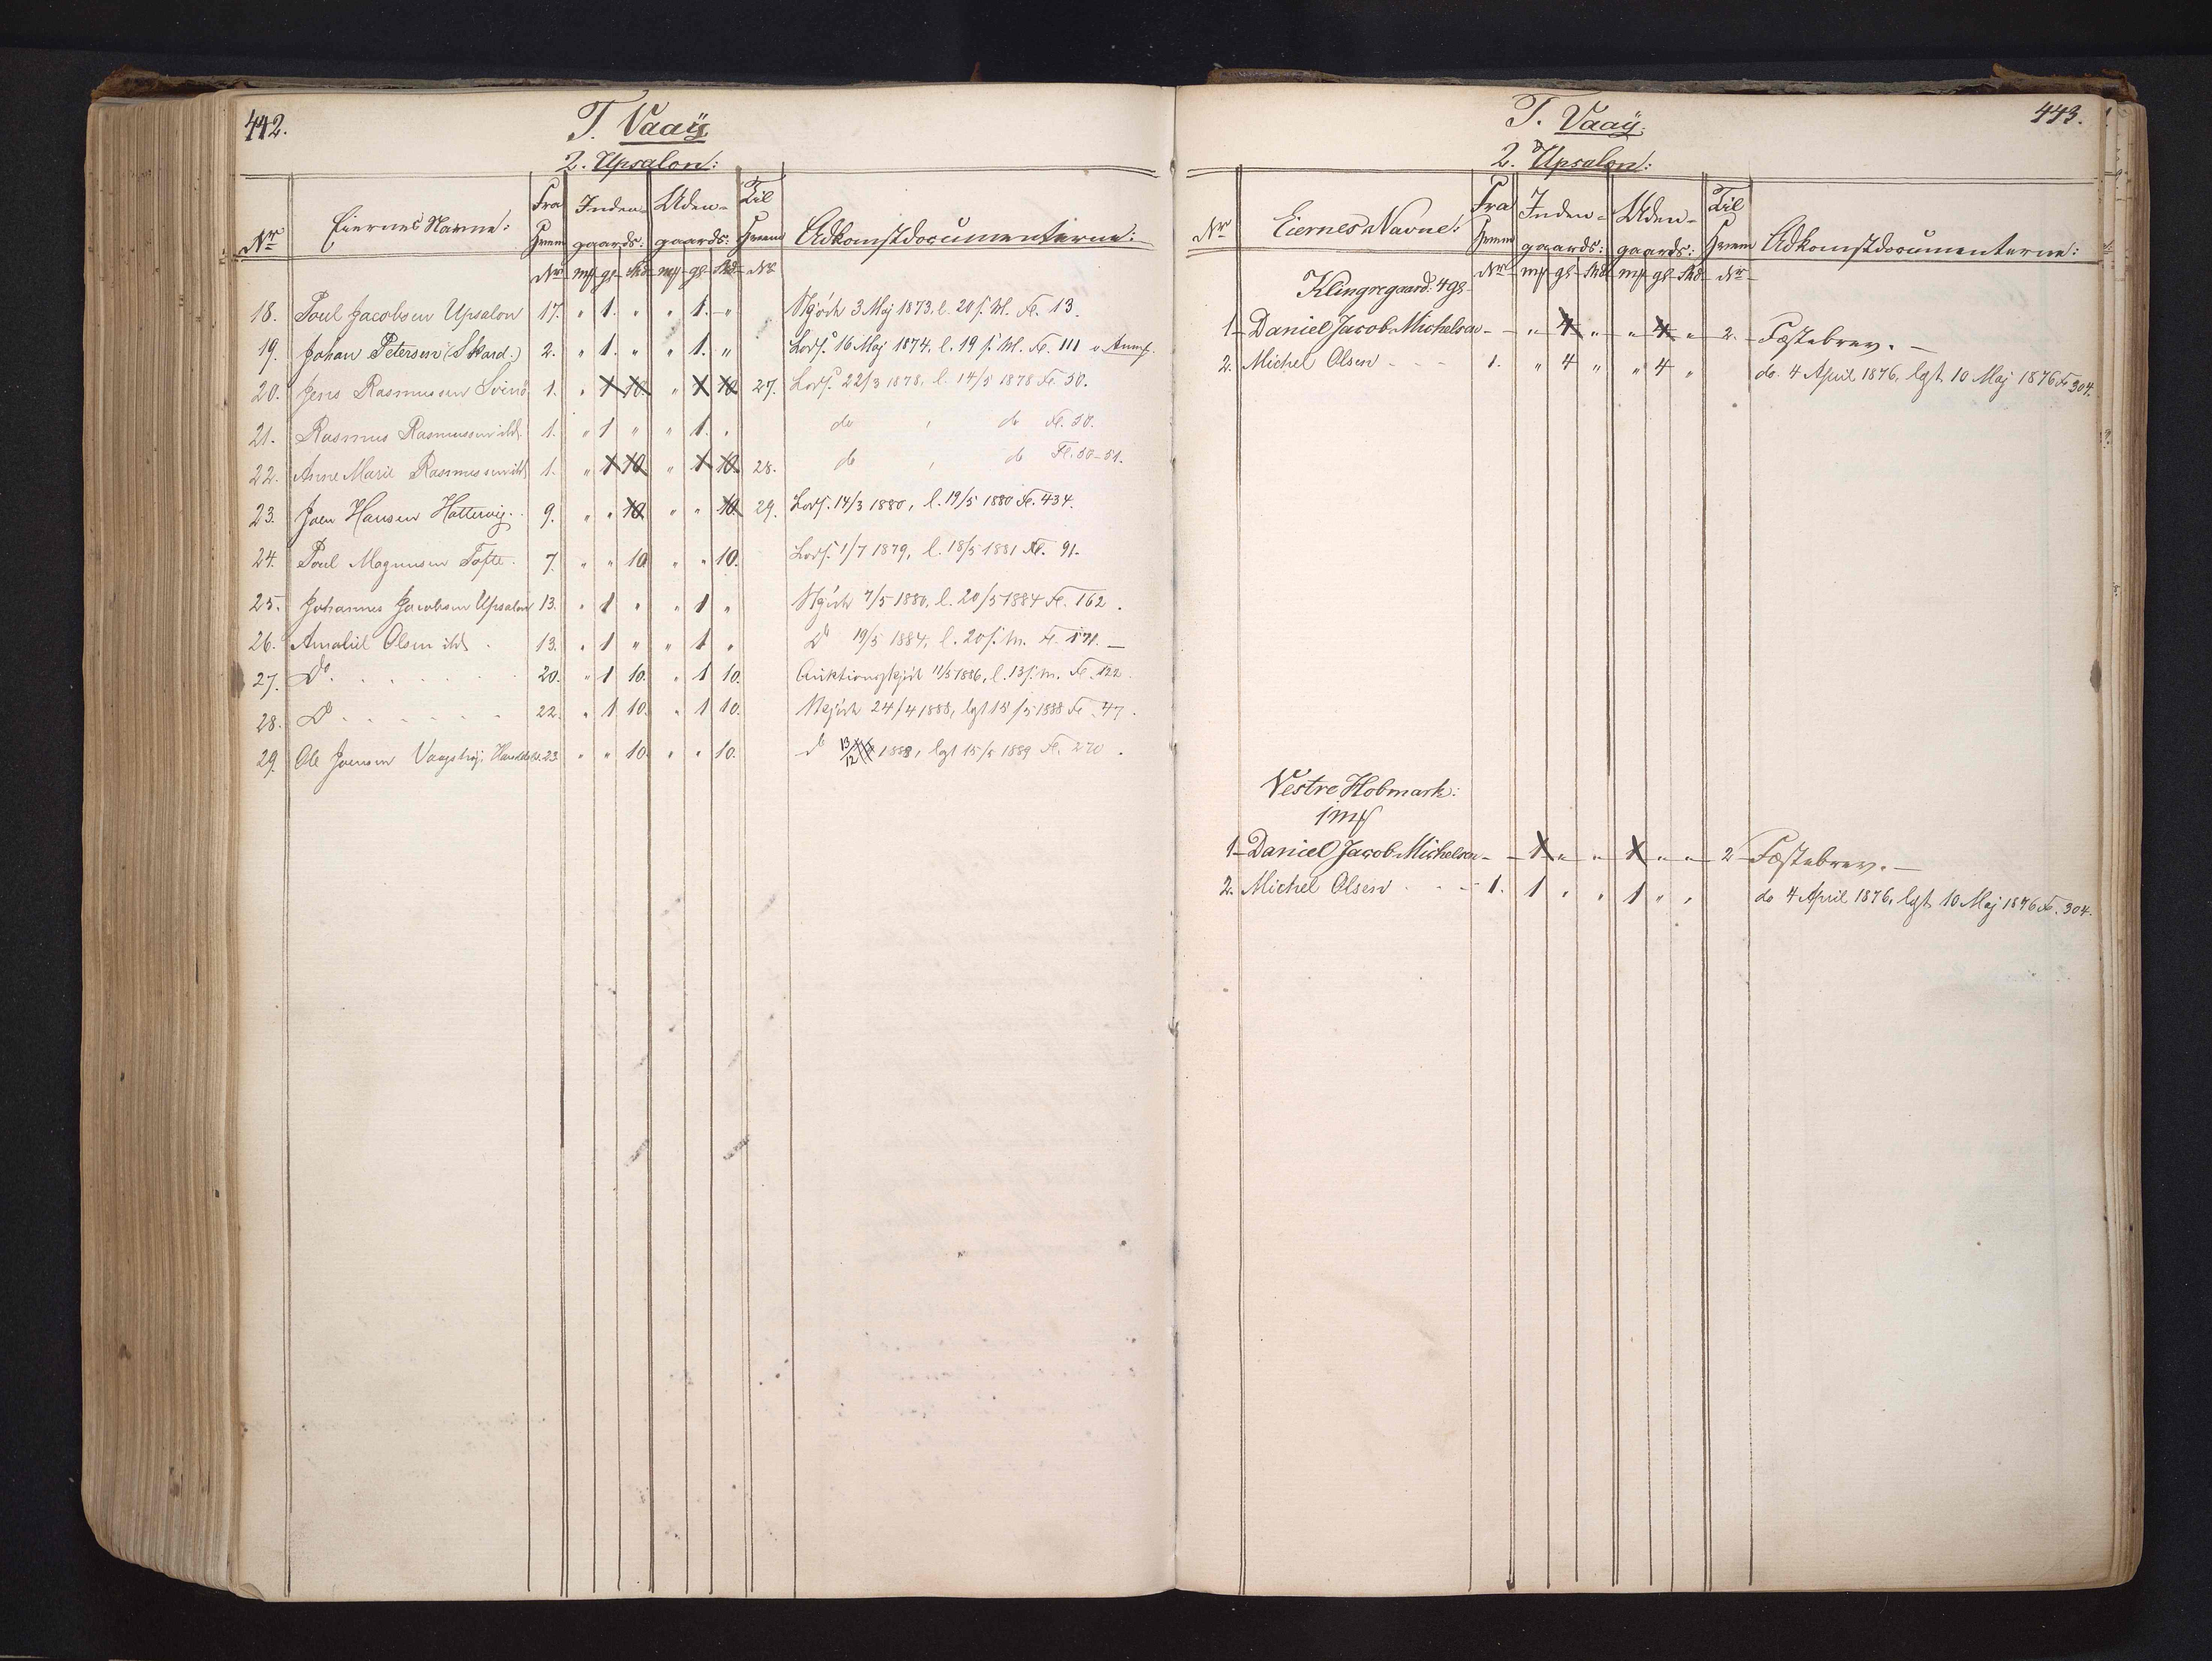 442.
T. Vaaÿ
2. Upsalon:
Nr Eiernes Navne: Fra Hmm Nr Inden- gaards: mk gl Skd Uden- gaards: mk gl Skd Til Hmm Nr Adkomstdocumenterne:
18. Poul Jacobsen Upsalon 17. " 1. " " 1. " Skjöde 3 Maj 1873, l. 20 s. M. Fo. 13.
19. Johan Petersen (Skard.) 2. " 1. " " 1. " Lods. 16 Maj 1874, l. 19 s. M. Fo. 111
20. Jens Rasmussen Svinö 1. " 1 10. " 1 10 27. Lods. 22/3 1878, l. 14/5 1878 Fo. 50.
21. Rasmus Rasmussen ibd. 1. " 1 " " 1. " do " do Fo. 50.
22. Anne Marie Rasmussen ibd 1. " 1 10 " 1 10. 28. do " do Fo. 50-51.
23. Joen Hansen Hattervig. 9. " " 10 " " 10. 29. Lods. 14/3 1880, l. 19/5 1880 Fo. 434.
24. Poul Magnusen Tofte. 7. " " 10 " " 10. Lods. 1/7 1879, l. 18/5 1881 Fo. 91.
25. Johannes Jacobsen Upsalon 13. " 1 " " 1 " Skjöde 7/5 1880, l. 20/5 1884 Fo. 162.
26. Amaliel Olsen ibd. 13. " 1 " " 1 " Do 19/5 1884, l. 20 s. M. Fo. 171.
27. Do 20. " 1 10. " 1 10. Auktionsskjöde 11/5 1886, l. 13 s. M. Fo. 122.
28. Do 22. " 1 10. " 1 10. Skjöde 24/4 1888, lgt 15/5 1888 Fo. 47.
29. Ole Joensen Vaagshöj. 23. " " 10. " " 10. do 13/12 1888, lgt 15/5 1889 Fo. 270.
443.
T. Vaaÿ.
2. Upsalon:
Nr Eiernes Navne: Fra Hmm Nr Inden- gaards: mk gl Skd Uden- gaards: mk gl Skd Til Hmm Nr Adkomstdocumenterne:
Klingregaard: 4 gl.
1 - Daniel Jacob Michelsen - - " 4 " " 4 " 2. - Fæstebrev. -
2. Michel Olsen - - - 1. " 4 " " 4 " do. 4 April 1876, lgt. 10 Maj 1876 Fo 304.
Vestre Hobmark:
1 mk
1 - Daniel Jacob Michelsen - - 1 " " 1 " " 2 - Fæstebrev. -
2. Michel Olsen - - - 1. 1 " " 1 " " do 4 April 1876, lgt. 10 Maj 1876 Fo. 304.